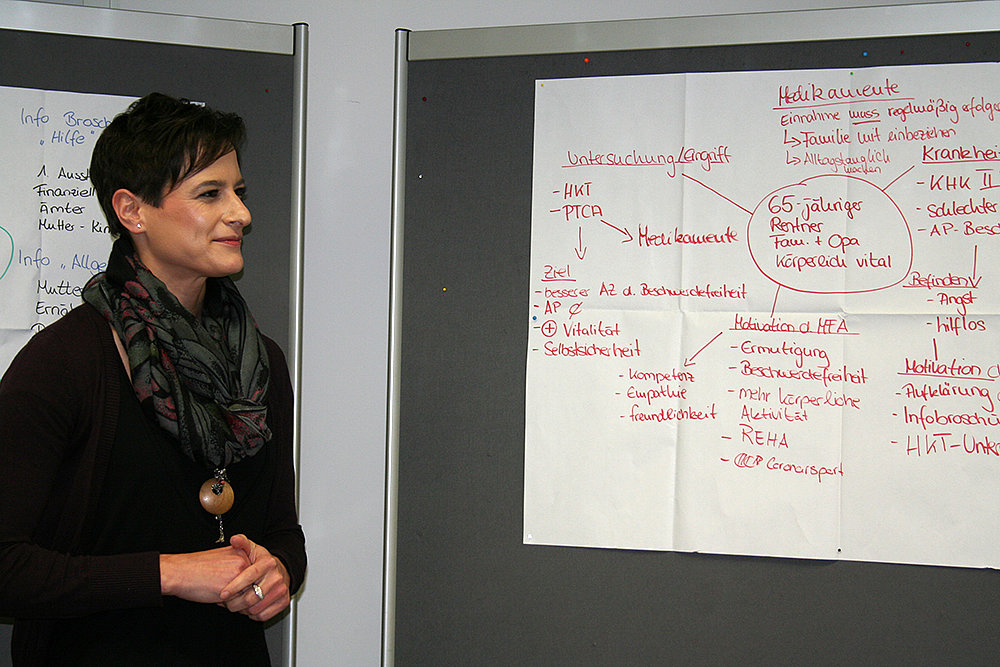 Info Brosch
„Hilfe"
1. Ausst
Finanziell
Ämter
Mutter - Kin
Info „Allge
Mutte
Ernäh
Medikamente
Einnahme muss regelmäßig erfolge
↳ Familie mit einbeziehen
↳ Alltagstauglich
machen
Untersuchung/Eingriff
- HKT
- PTCA
Medikamente
65-jähriger
Rentner
Fam. + Opa
körperlich vital
Krankhei
- KHK II
- Schlechter
- AP-Besc
Ziel
- besserer AZ d. Beschwerdefreiheit
- AP ⊄
- ⊕ Vitalität
- Selbstsicherheit
Befinden
- Angst
- hilflos
Motivation d. MFA
- Ermutigung
- Beschwerdefreiheit
- mehr körperliche
Aktivität
- REHA
- Coronarsport
- Kompetenz
- Empathie
- freundlichkeit
Motivation d
- Aufklärung
- Infobroschü
- HKT-Unter